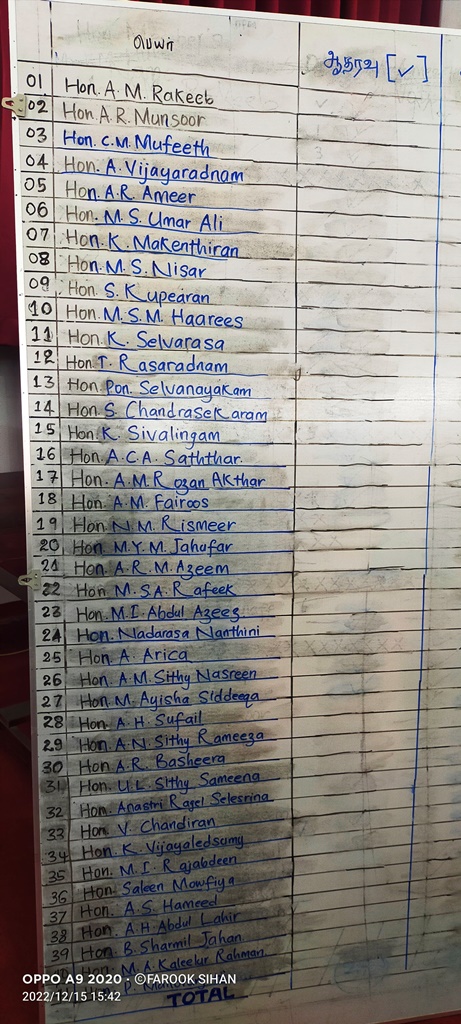 பெயர்
ஆதரவு [✓]
01 Hon. A. M. Rakeeb
02 Hon. A. R. Munsoor
03 Hon. C. M. Mufeeth
04 Hon. A. Vijayaradnam
05 Hon. A. R. Ameer
06 Hon. M. S. Umar Ali
07 Hon. K. Makenthiran
08 Hon. M. S. Nisar
09 Hon. S. Kupearan
10 Hon. M. S. M. Haarees
11 Hon. K. Selvarasa
12 Hon. T. Rasaradnam
13 Hon. Pon. Selvanayakam
14 Hon. S. Chandrasekaram
15 Hon. K. Sivalingam
16 Hon. A. C. A. Saththar.
17 Hon. A. M. Rozan Akthar
18 Hon. A. M. Fairoos
19 Hon. N. M. Rismeer
20 Hon. M. Y. M. Jahufar
21 Hon. A. R. M. Azeem
22 Hon. M. S. A. Rafeek
23 Hon. M. I. Abdul Azeez
24 Hon. Nadarasa Nanthini
25 Hon. A. Arica
26 Hon. A. M. Sithy Nasreen
27 Hon. M. Ayisha Siddeeqa
28 Hon. A. H. Sufail
29 Hon. A. N. Sithy Rameeza
30 Hon. A. R. Basheera
31 Hon. U. L. Sithy Sameena
32 Hon. Anastri Ragel Selesrina
33 Hon. V. Chandiran
34 Hon. K. Vijayaledsumy
35 Hon. M. I. Rajabdeen
36 Hon. Saleen Mowfiya
37 Hon. A. S. Hameed
38 Hon. A. H. Abdul Lahir
39 Hon. B. Sharmil Jahan
Hon. M. A. Kaleelur Rahman
TOTAL
OPPO A9 2020 · ©FAROOK SIHAN
2022/12/15 15:42